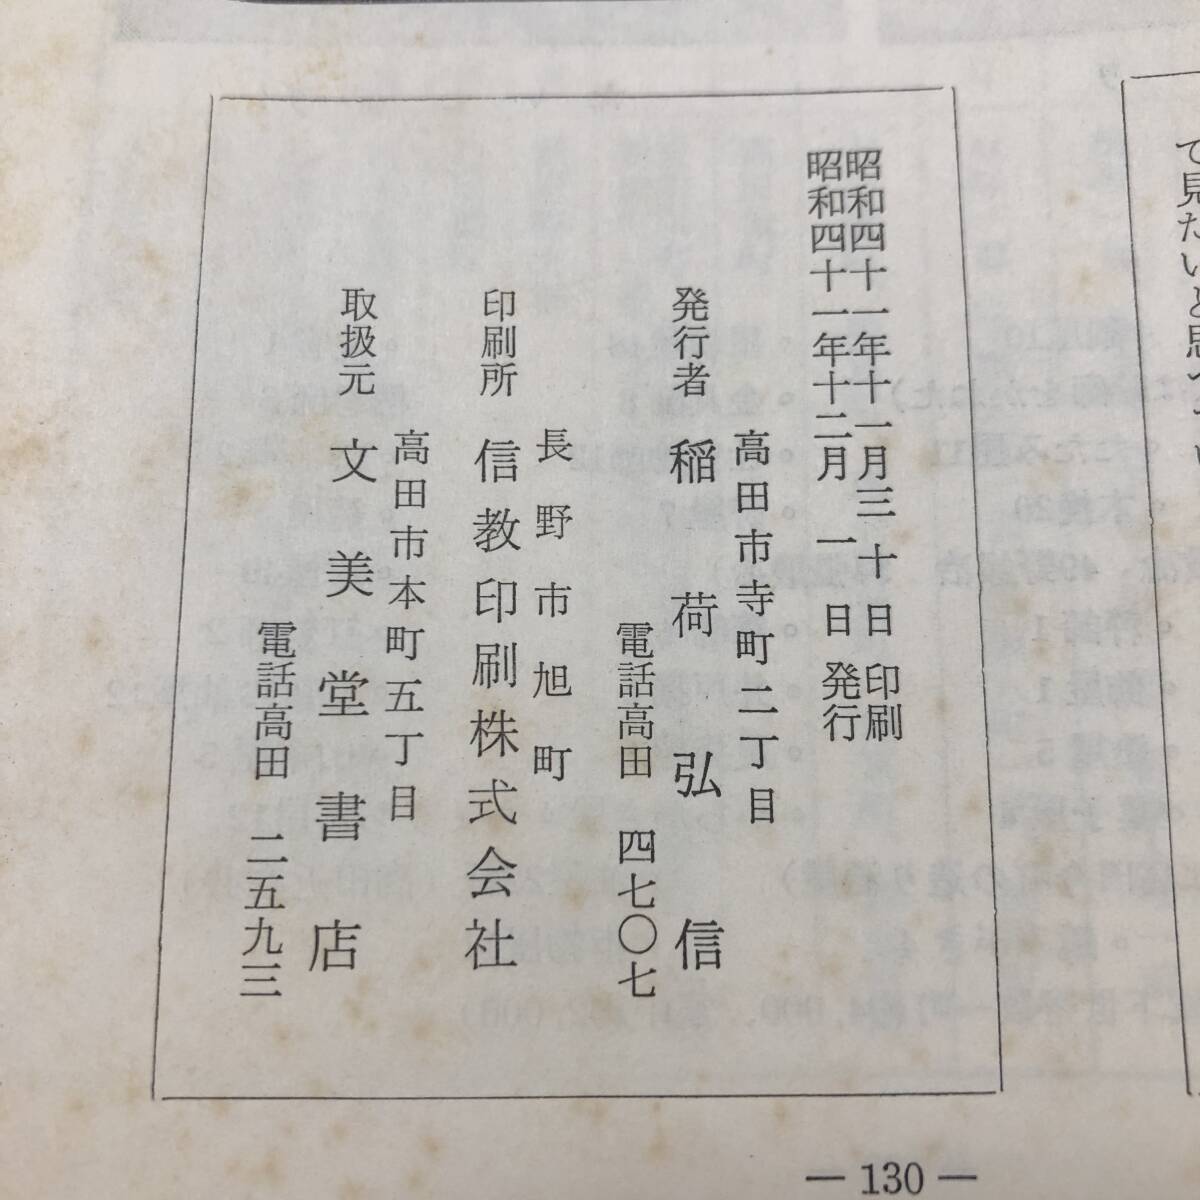 て見たいと思
昭和四十一年十一月三十日印刷
昭和四十一年十二月一日発行
高田市寺町二丁目
発行者 稲荷弘信
電話高田 四七〇七
長野市旭町
印刷所 信教印刷株式会社
高田市本町五丁目
取扱元 文美堂書店
電話高田 二五九三
— 130 —